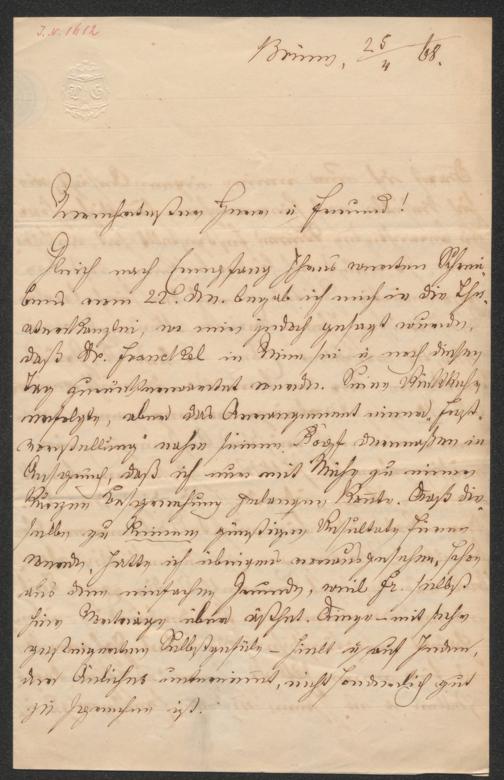 I.N. 1612
Brünn, 25/4 68.
Verehrtester Herr u Freund!
Gleich nach Empfang Ihres werthen Schrei-
bens vom 22t. dM. begab ich mich in die The-
aterkanzlei, wo mir jedoch gesagt wurde,
daß Dr. Franckel in Wien sei u noch diesen
Tag zurückerwartet werde. Seine Rückkehr
erfolgte, aber das Arrangement einer „Fest-
vorstellung" nahm seinen Kopf dermaßen in
Anspruch, daß ich nur mit Mühe zu einer
kurzen Besprechung gelangen konnte. Daß die-
selbe zu keinem günstigen Resultate führen
werde, hatte ich übrigens vorausgesehen, schon
aus dem einfachen Grunde, weil Fr. selbst
seine Vorträge über ästhet. Dinge – mit sehr
gesteigertem Selbstgefühl – hielt u auf Jeden,
der Änliches unternimmt, nicht sonderlich gut
zu sprechen ist.